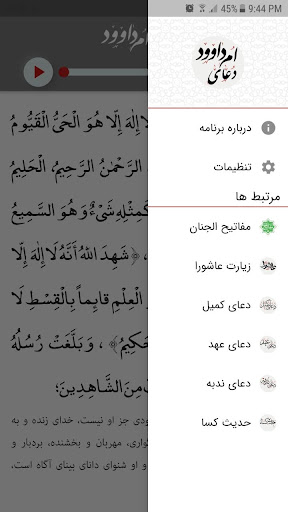 45% 9:44 PM
ام داوود
ام داوود
دعای
درباره برنامه
تنظیمات
مرتبط ها
مفاتیح الجنان
زیارت عاشورا
دعای کمیل
دعای عهد
دعای ندبه
حدیث کسا
لا إِلٰهَ إِلّا هُوَ الْحَيُّ الْقَيُّومُ
الرَّحْمٰنُ الرَّحِيمُ، الْحَلِيمُ
كَمِثْلِهِ شَيْءٌ وَهُوَ السَّمِيعُ
، ﴿شَهِدَ اللّٰهُ أَنَّهُ لَاإِلٰهَ إِلَّا
الْعِلْمِ قائِماً بِالْقِسْطِ لَا
حَكِيمُ﴾ ، وَبَلَّغَتْ رُسُلُهُ
مِنَ الشَّاهِدِينَ؛
جز او نیست، خدای زنده و به
مهربان و بخشنده، بردبار و
و او شنوای دانای بینای آگاه است،